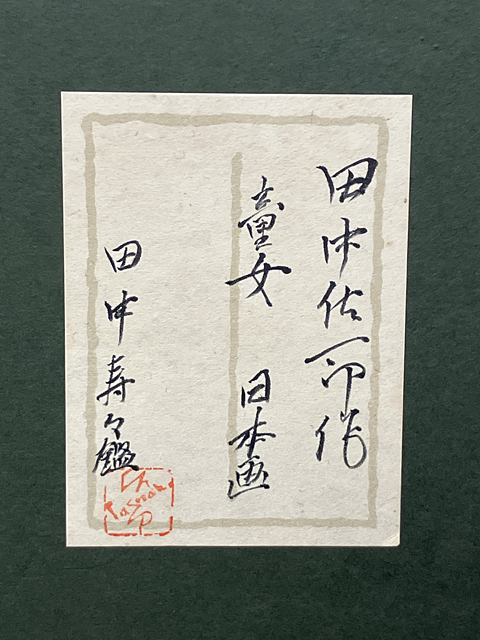 田中佐一郎作
童女　日本画
田中寿々鑑